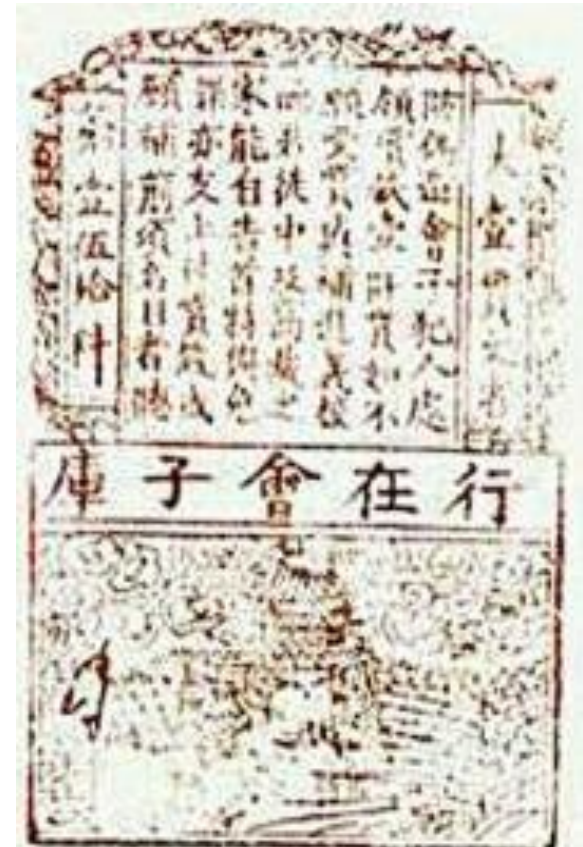 大壹
偽造會子犯人處
賞錢壹阡貫如不
願支賞與補進義校
若徒中及窩藏之
家能自告首特與免
罪亦支上件賞錢或
願補前項名目者聽
第壹伍拾料
行在會子庫